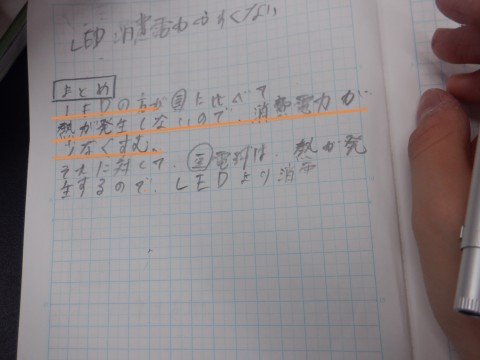 LED 消費電力 少くない
まとめ
LEDの方が豆に比べて
熱が発生しないので、消費電力が
少なくすむ。
それに対して、豆電球は、熱が発
生するので、LEDより消費